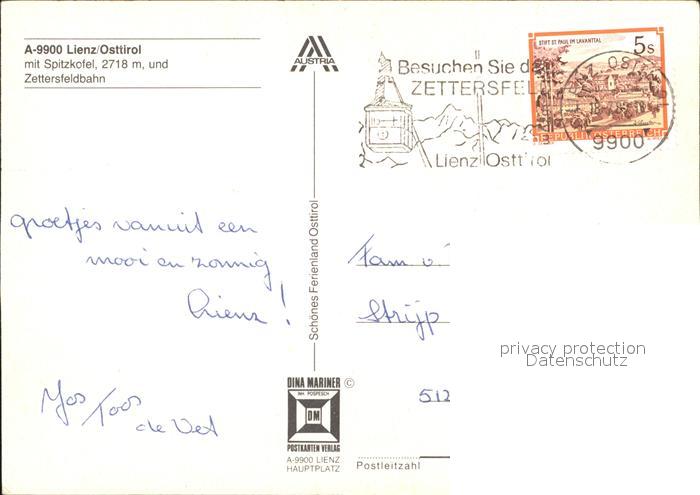 A-9900 Lienz/Osttirol
mit Spitzkofel, 2718 m, und
Zettersfeldbahn
AUSTRIA
Besuchen Sie das
ZETTERSFELD
Lienz Osttirol
STIFT ST. PAUL IM LAVANTTAL
5 S
REPUBLIK ÖSTERREICH
9900
groetjes vanuit een
mooi en zonnig
Lienz!
Jos/Toos
de Vet
Schönes Ferienland Osttirol
Fam
Strijp
512
privacy protection
Datenschutz
DINA MARINER ©
INH. POSPESCH
DM
POSTKARTEN VERLAG
A-9900 LIENZ
HAUPTPLATZ
Postleitzahl